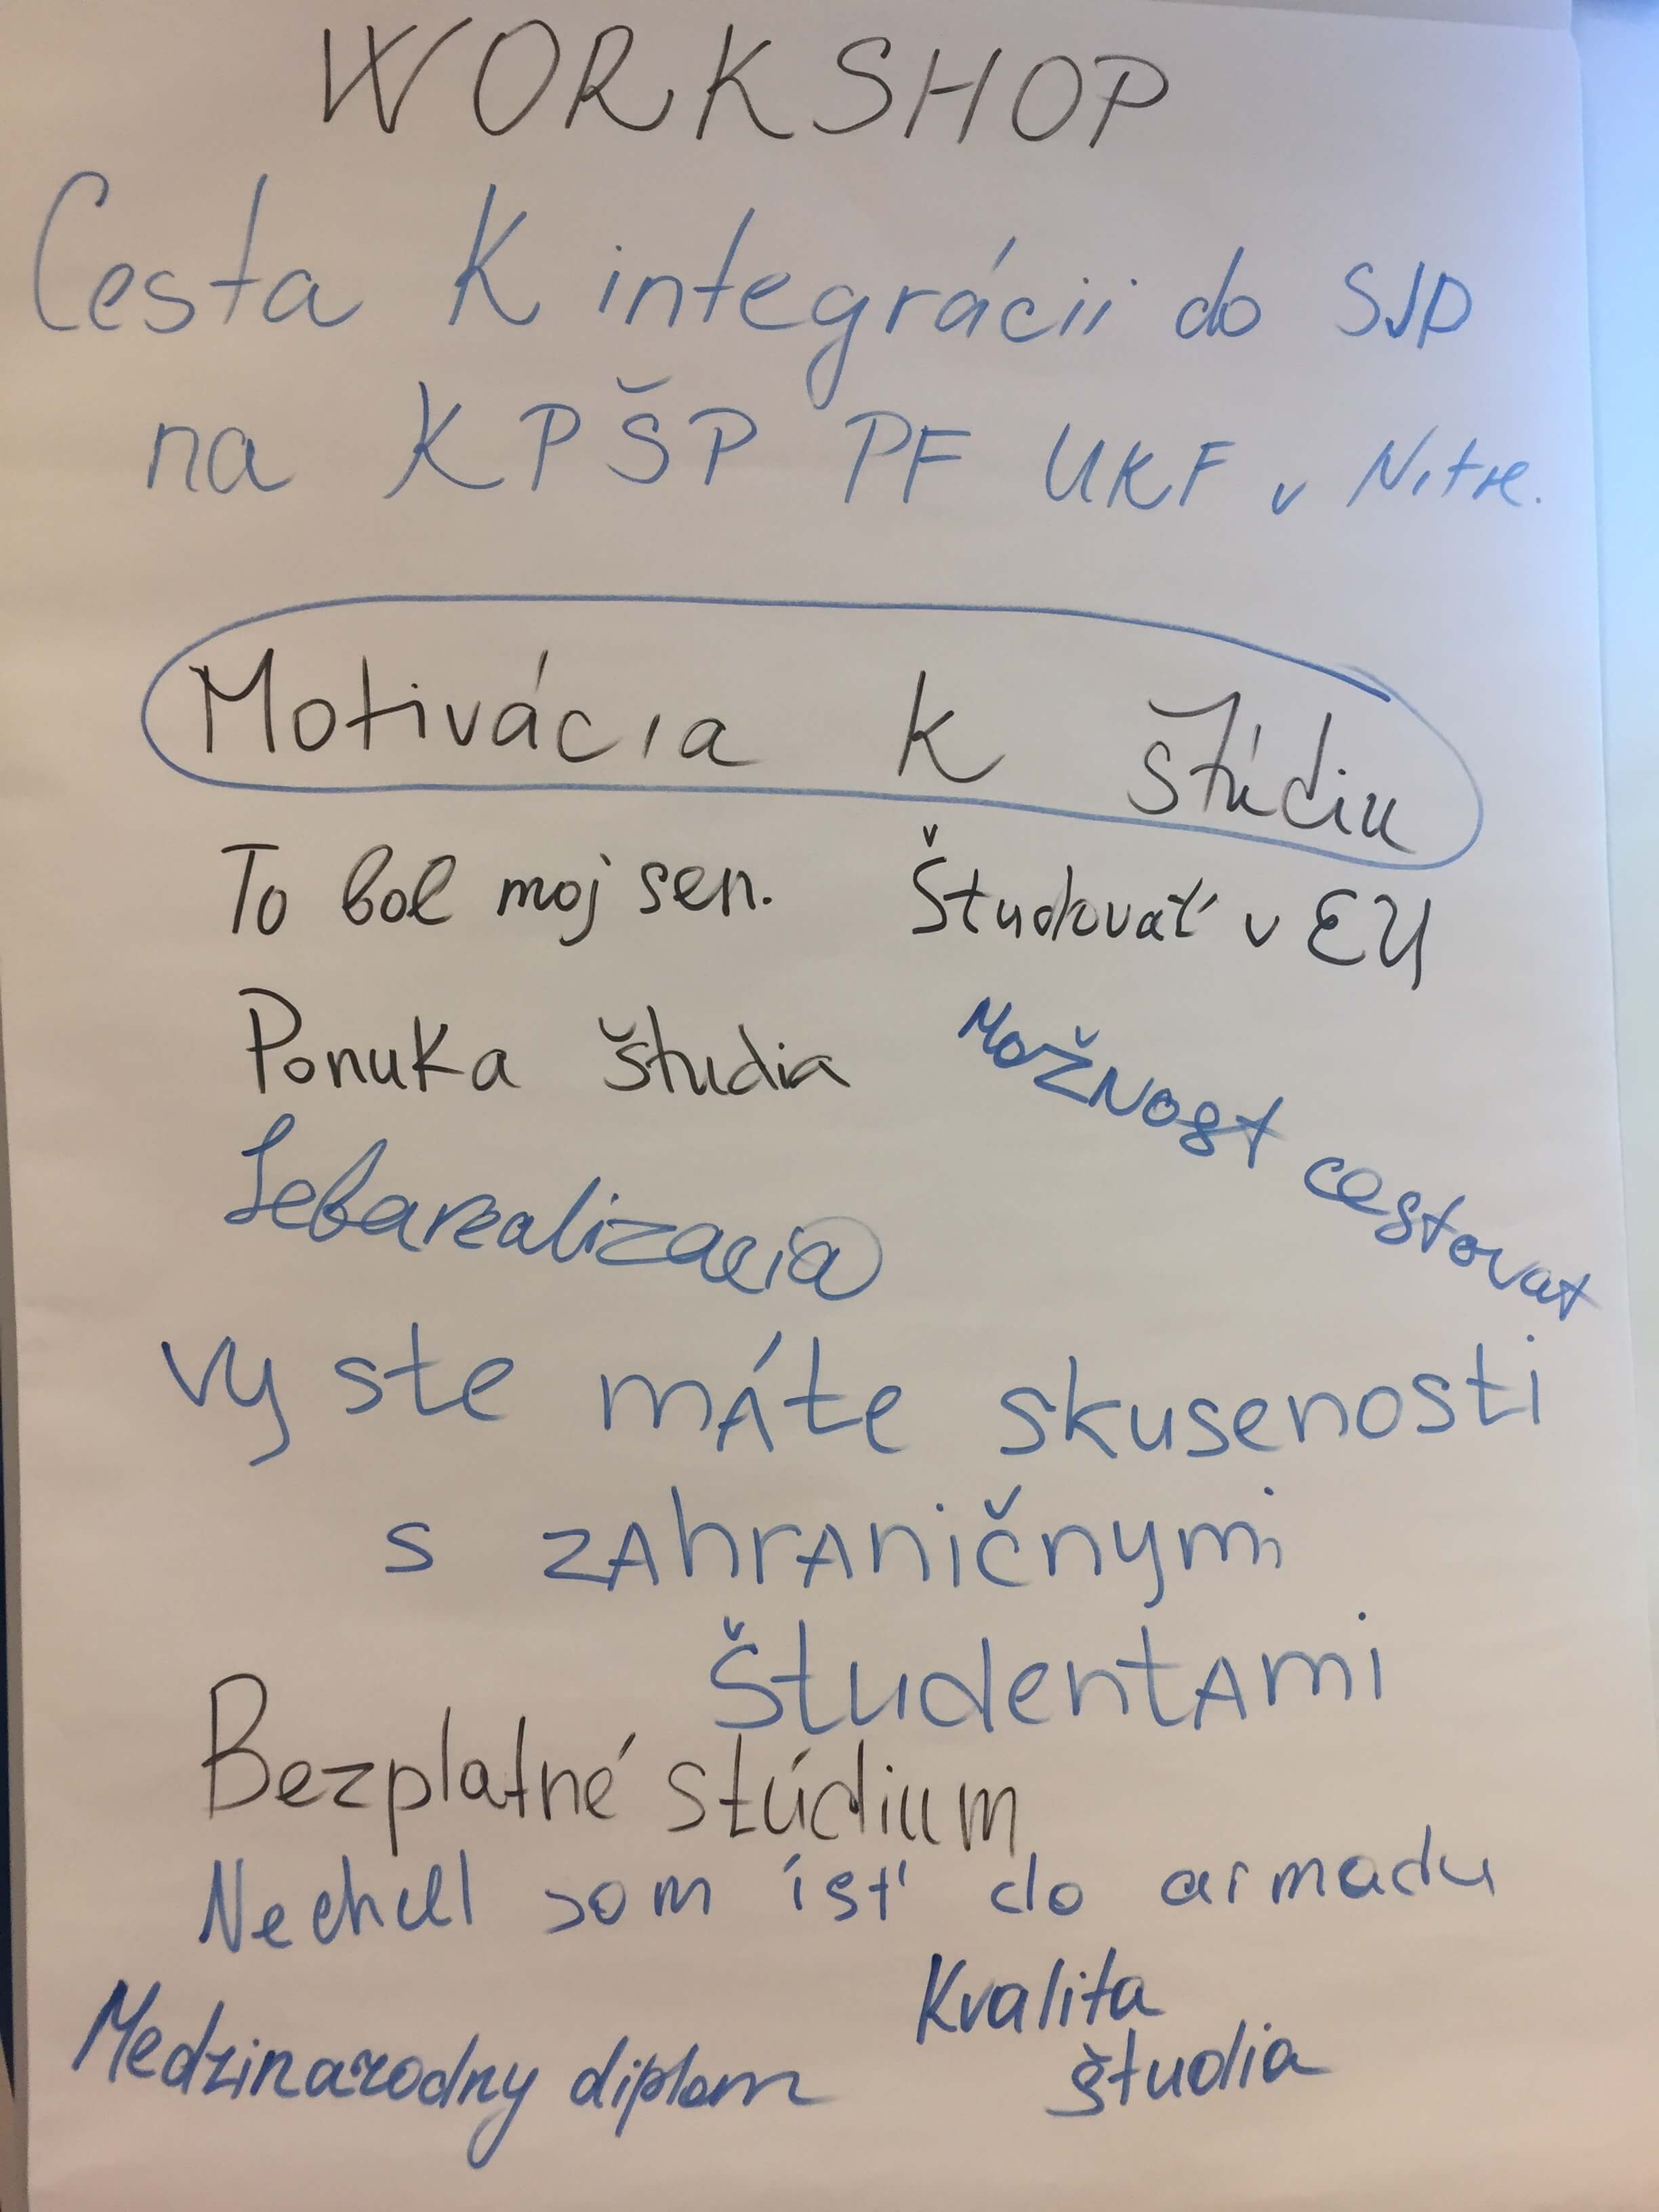 WORKSHOP
Cesta K integrácii do SJP
na KPŠP PF UKF v Nitre.
Motivácia k štúdiu
To bol moj sen. Študovať v EU
Ponuka študia
Možnost cestovat
Sebarealizacia
vy ste máte skusenosti
s zahraničnymi
študentami
Bezplatné stúdium
Nechcel som ísť do armadu
Kvalita
študia
Medzinarodny diplom